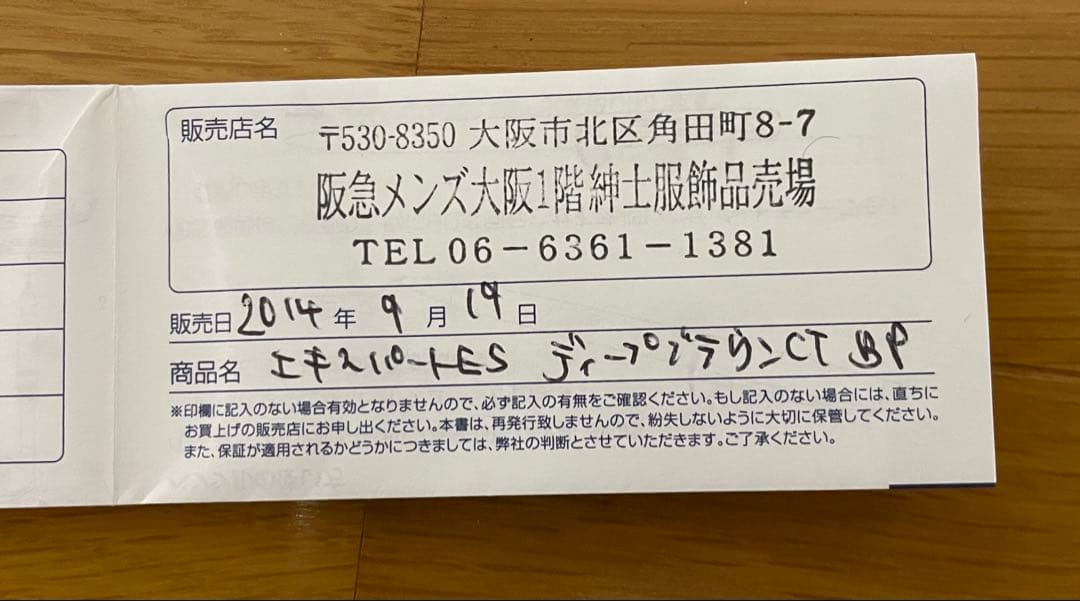 販売店名
〒530-8350 大阪市北区角田町8-7
阪急メンズ大阪1階紳士服飾品売場
TEL 06-6361-1381
販売日 2014 年 9 月 19 日
商品名 エキスパートES ディープブラウンCT BP
※印欄に記入のない場合有効となりませんので、必ず記入の有無をご確認ください。もし記入のない場合には、直ちに
お買上げの販売店にお申し出ください。本書は、再発行致しませんので、紛失しないように大切に保管してください。
また、保証が適用されるかどうかにつきましては、弊社の判断とさせていただきます。ご了承ください。